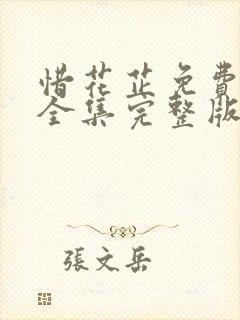 惜花芷免費
全集完整版
張文岳